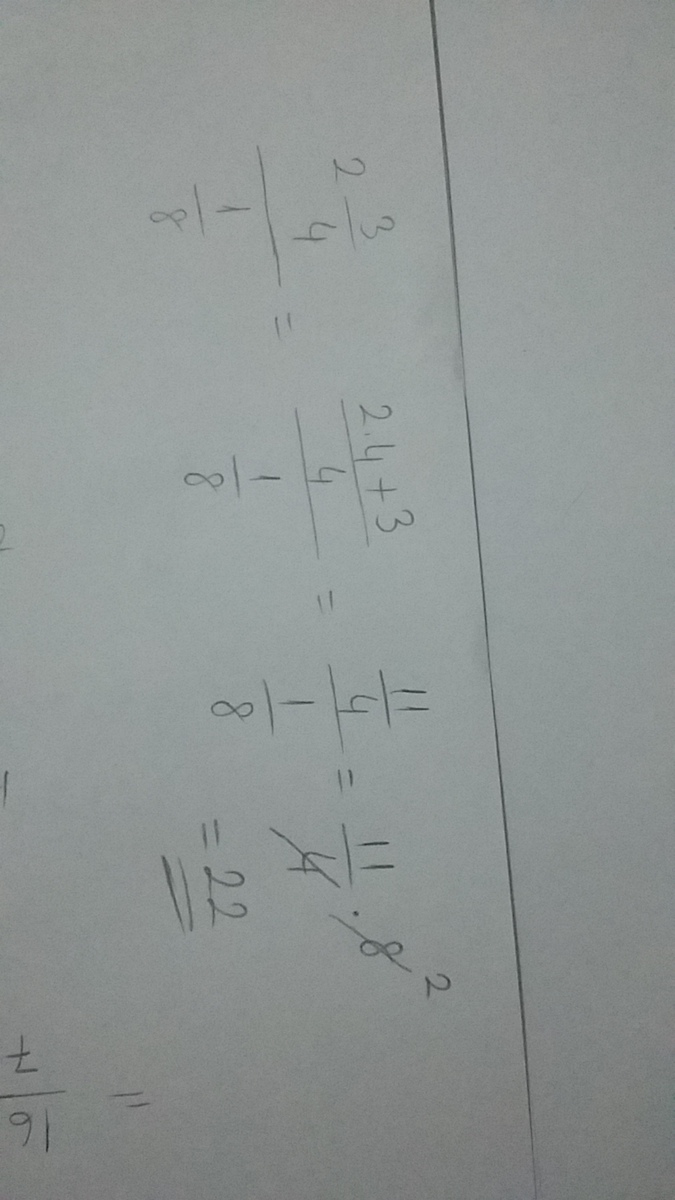 2 3/4 / 1/8 = (2.4+3)/4 / 1/8 = 11/4 / 1/8 = 11/4 · 8 2
= 22
=
7/16